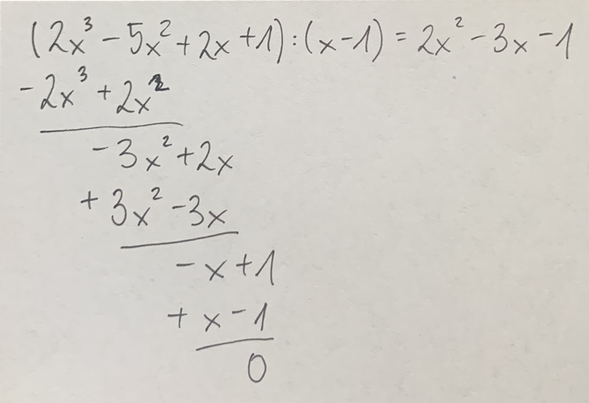 (2x³ - 5x² + 2x + 1) : (x - 1) = 2x² - 3x - 1
- 2x³ + 2x²
- 3x² + 2x
+ 3x² - 3x
- x + 1
+ x - 1
0